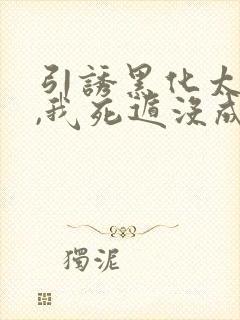 引誘黑化太
,我死遁沒成
獨泥